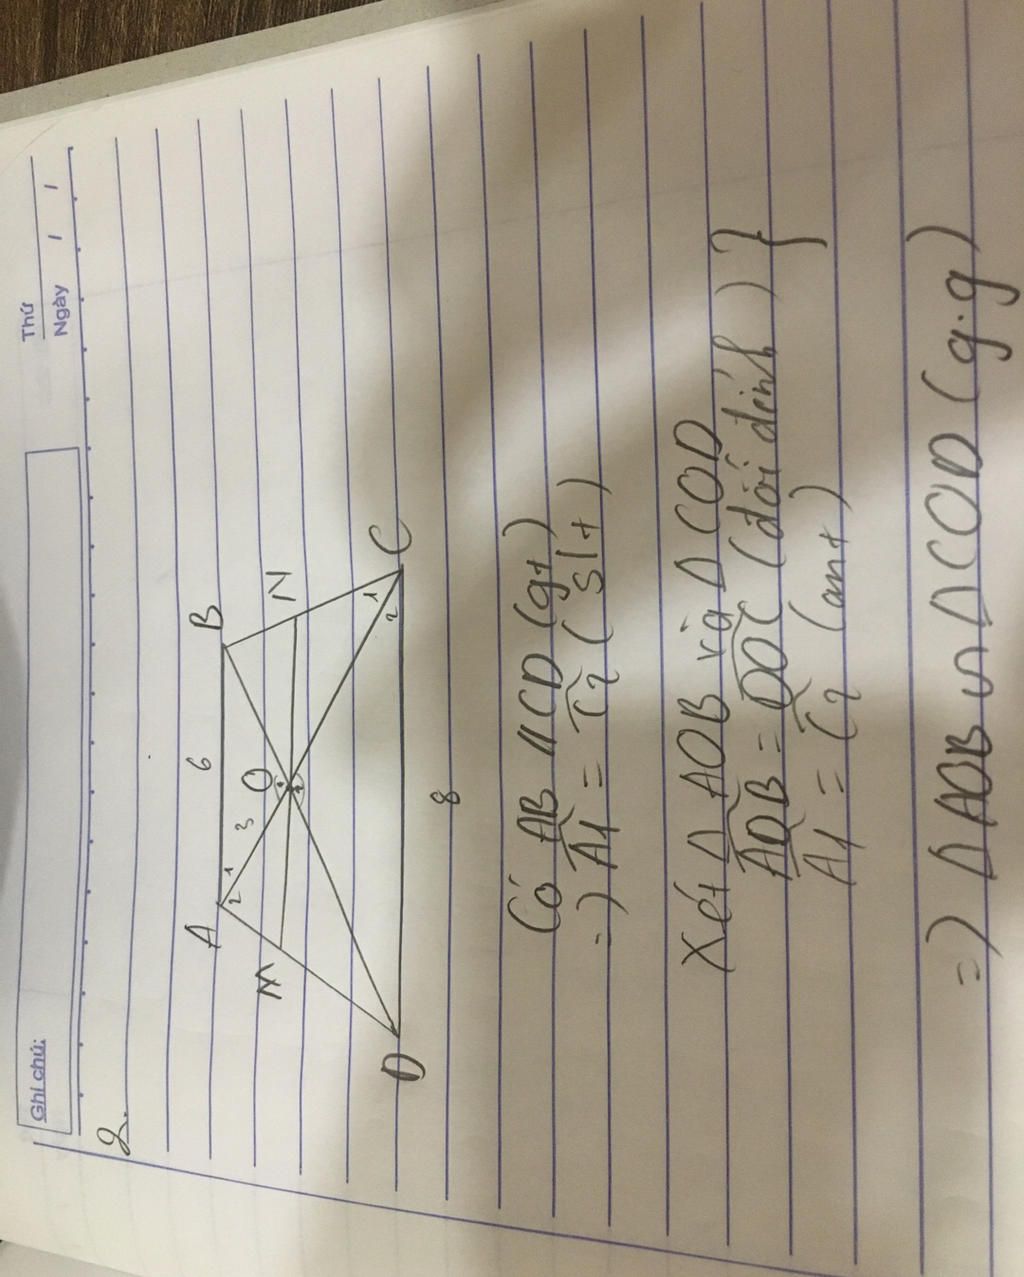 Ghi chú:
Thứ
Ngày / /
2.
A 6 B
1
2 3
O
M N
1
2
D C
8
Có AB // CD (gt)
=) A1 = C2 (slt)
Xét Δ AOB và Δ COD
AOB = DOC (đối đỉnh) }
A1 = C2 (cmt)
=) Δ AOB ∽ Δ COD (g.g)